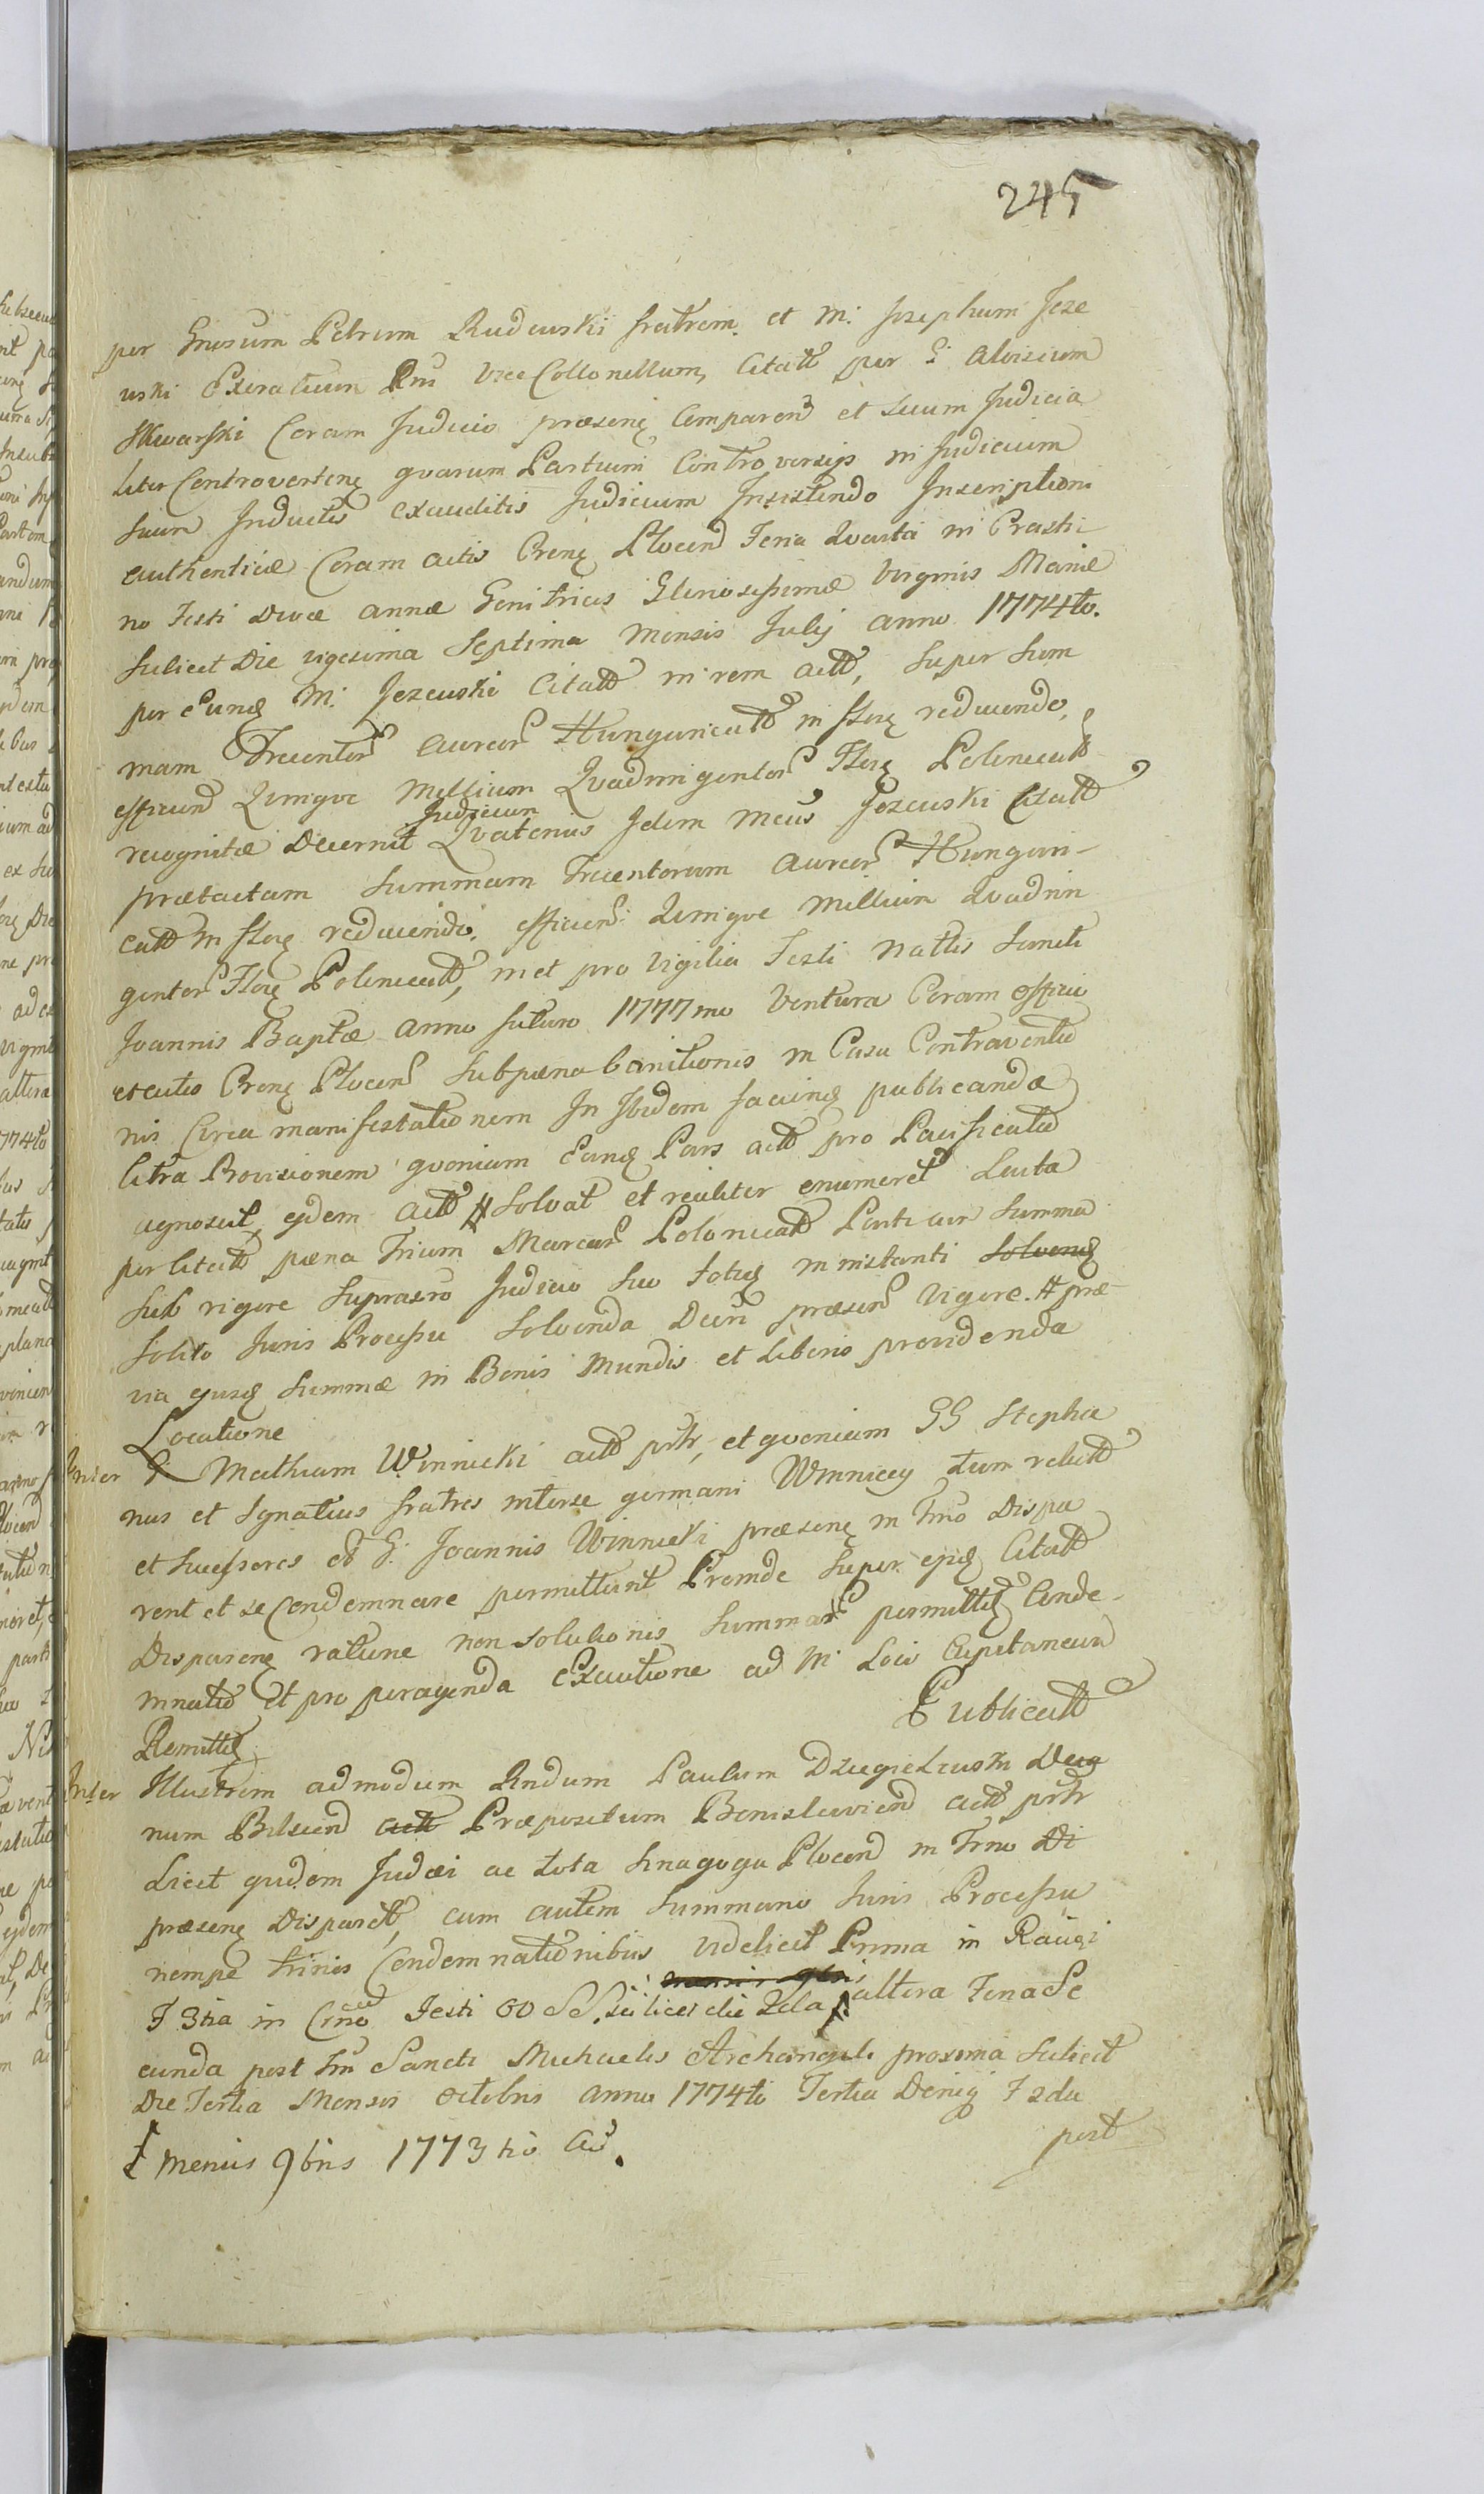 245
per Gnosum Petrum Rudowski fratrem. et M: Josephum Jeze
wski Exercituum Rni Vice Collonellum, Citatt per G: Aloisium
Skwarski Coram Judicio præsenq Comparen et suum Judicia
liter Controverteng qvarum Partium Controversijs in Judicium
suum Inductis exauditis Judicium Insistendo Inscriptioni
authenticæ Coram actis Crenq Plocen Feria Qvarta in Crasti
no Festi Divæ Annæ Genitricis Gloriosissimæ Virginis Mariæ
scilicet Die vigesima Septima Mensis Julij anno 1774to.
per eund M: Jezewski Citatt in rem actt, super sum
mam Trecentor aureor Hungaricatt in flor reducendo,
efficien Qvinqve Millium Qvadringentor Flor Polonicatt
recognitæ Decernit Judicium Qvatenus Idem Mcus Jezewski Citatt
prætactam summam Trecentorum aureor Hungari-
catt in flor reducendo. efficien Qvinqve Millium Qvadrin
gentor Flor Polonicatt, in et pro vigilia Festi Nattis Sancti
Joannis Baptæ anno futuro 1777mo ventura Coram officio
et actis Crenq Plocen sub pæna banitionis in Casu Contraventio
nis Circa manifestationem In Ibidem faciend publicandæ
Citra Provisionem qvoniam Eand Pars actt pro Pacificatio
agnoscit, ejdem actt # solvat et realiter enumeret Lucta
per Citatt pæna Trium Marcar Polonicatt Parti cum summa
sub rigore suprasro Judicio suo totid in instanti solvend
solito Juris Processu solvenda Decti præsen vigore. # præ
via ejusd summæ in Bonis Mundis et Liberis providenda
Locatione
Inter G Mathiam Winnicki actt prtr, et qvoniam GG Stepha
nus et Ignatius fratres interse germani Winnicey tum velutt
et successores olt G: Joannis Winnicki præsenq in Trno Dispa
rent et se Condemnare permittunt Proinde super ejsd Citatt
Disparenq ratione non solutionis summar permittitq Conde-
mnatio et pro peragenda Executione ad M: Loci Capitaneum
Remittit
Publicatt
Inter Illustrem admodum Rndum Paulum Dziegielewski Deca
num Bilscen actt Præpositum Bonislavien actt prtr
Licet qvidem Judæi ac tota Sinagoga Plocen in Trno Di
præsenq Disparet, cum autem summario Juris Processu
nempe trinis Condemnationibus videlicet Prima in
F 3tia in Crno Festi OO SS. scilicet die 2da altera Feria Se
cunda post fm Sancti Michaelis Archangeli proxima scilicet
Die Tertia Mensis Octobris Anno 1774ti Tertia Deniq F 2da
post
Mensis 9bris 1773tio